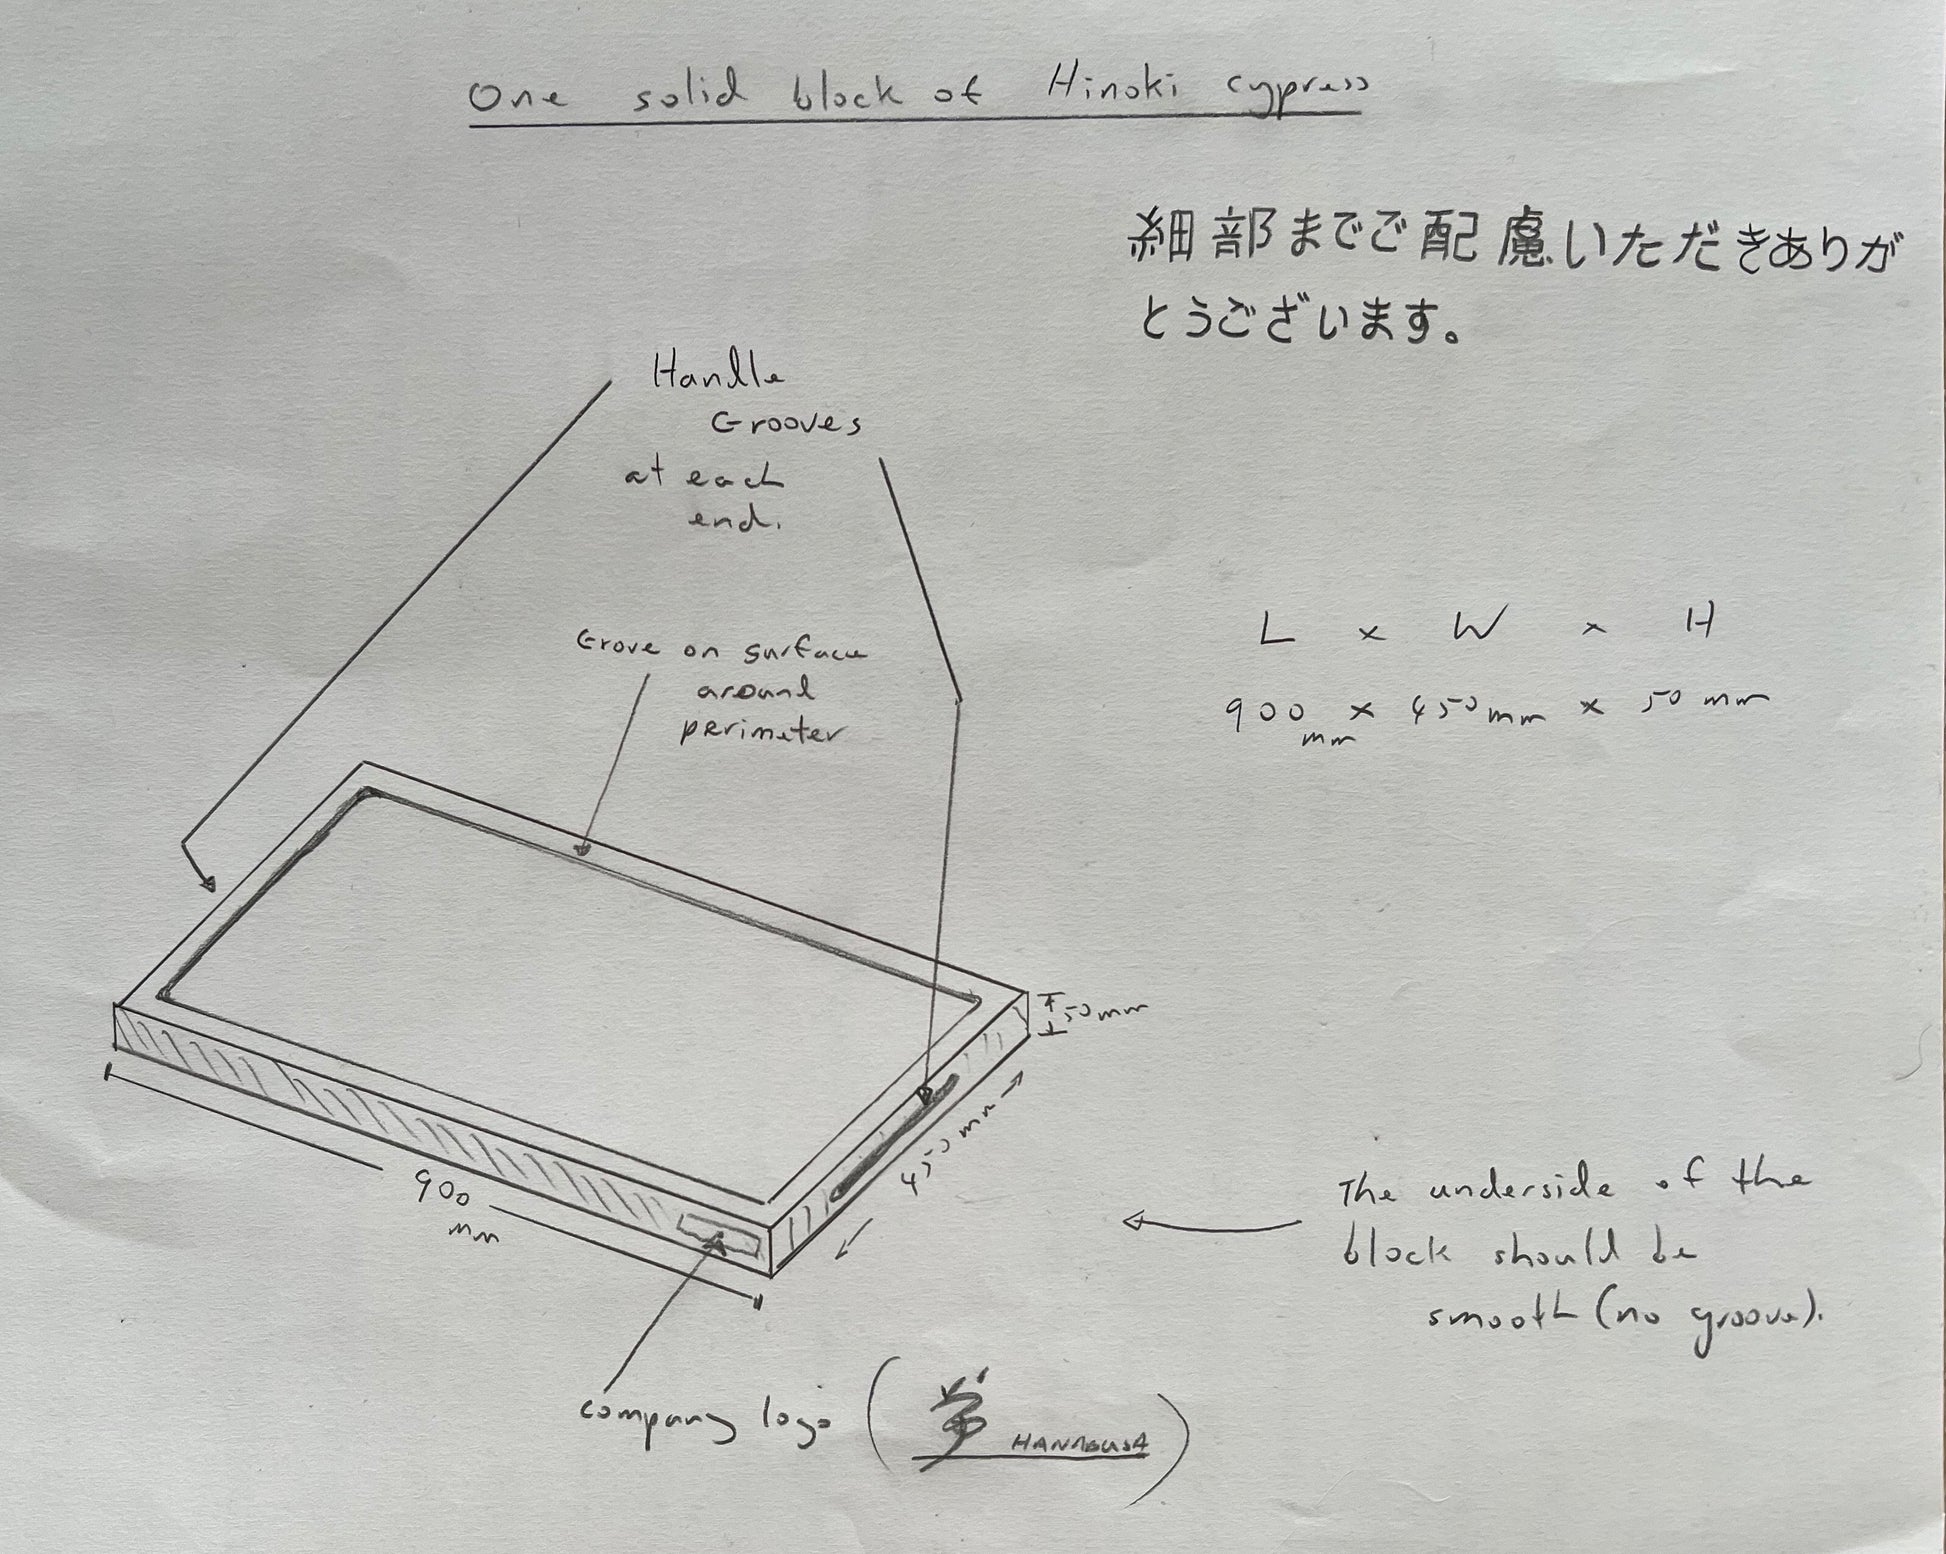 One solid block of Hinoki cypress
細部までご配慮いただきありが
とうございます。
Handle
Grooves
at each
end.
Grove on surface
around
perimeter
L x W x H
900 x 450mm x 50mm
mm
50mm
450mm
900
mm
The underside of the
block should be
smooth (no groove).
company logo ( HANABUSA )